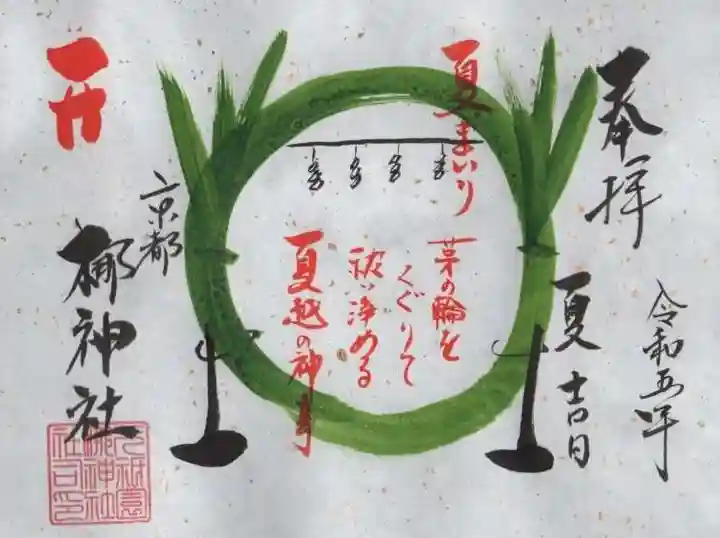 奉拝
令和五年
夏吉日
夏まいり
茅の輪を
くぐりて
祓い浄める
夏越の神事
京都
梛神社
元祇園
梛神社
社司印